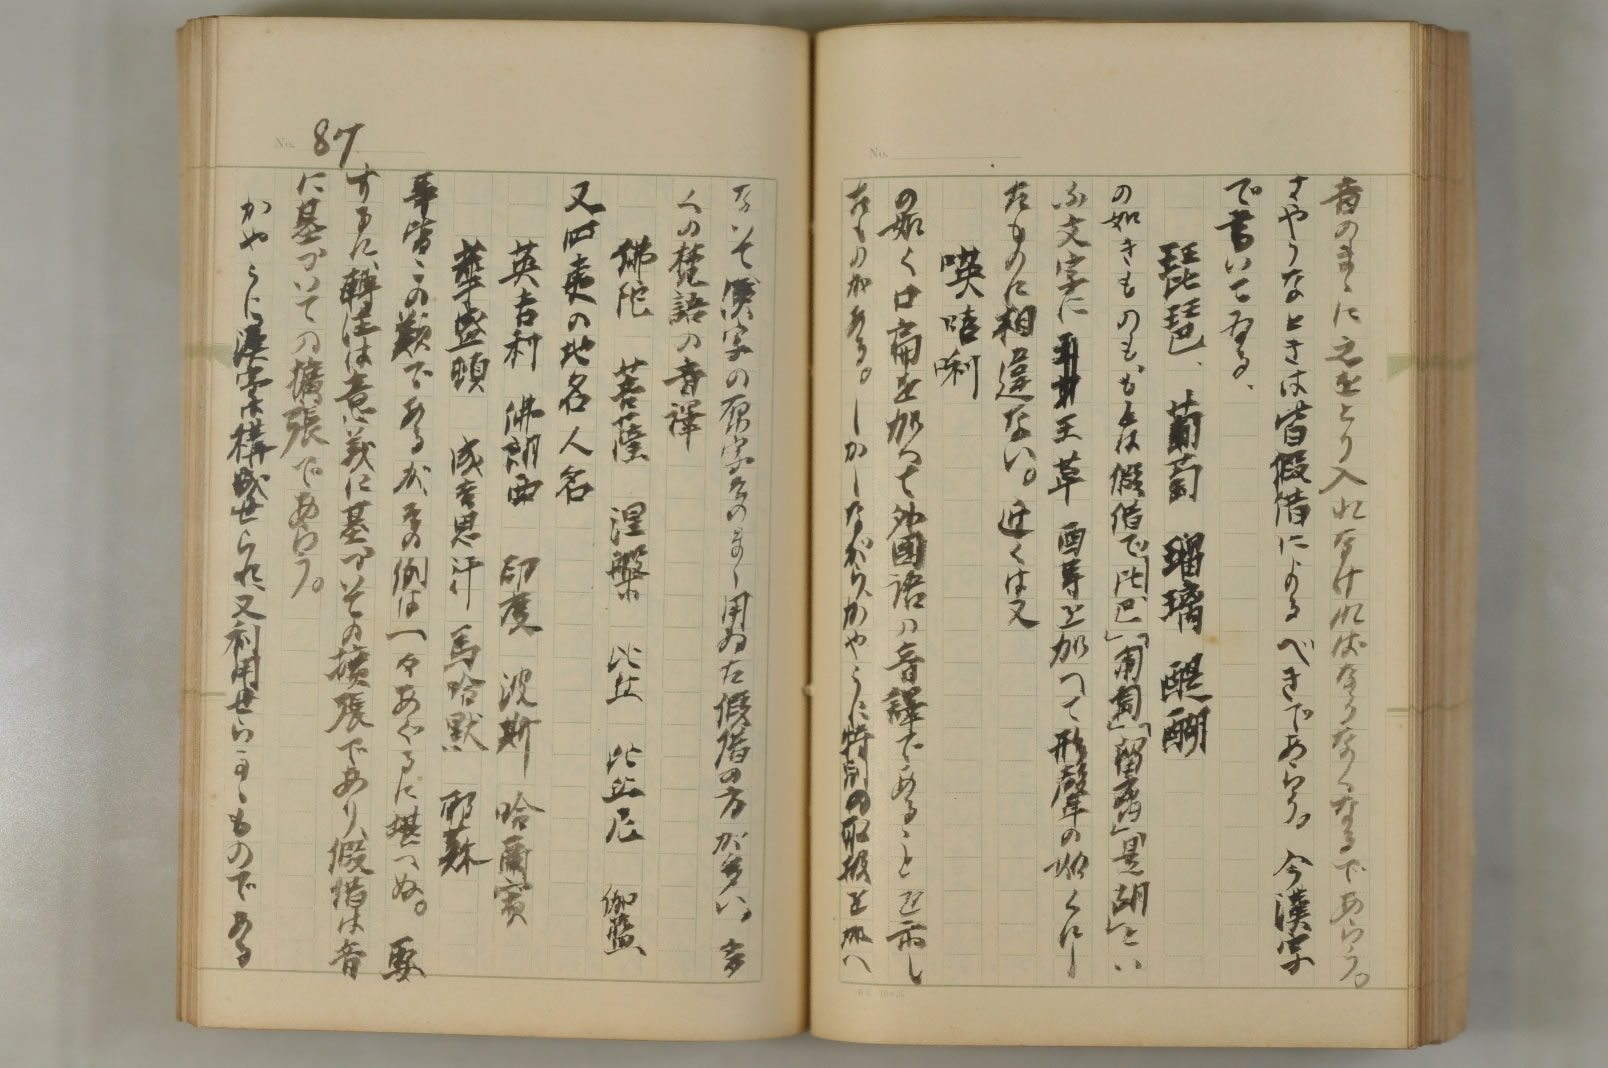 音のまゝに之をとり入れなければならなくなるであらう。
さやうなときは皆假借によるべきであらう。今漢字
で書いてゐる、
琵琶、葡萄 瑠璃 醍醐
の如きものも、もとは假借で「比巴」「匍匐」「留离」「是胡」とい
ふ文字に王草酉等を加へて形聲の如くにし
たものに相違ない。近くは又
㗲咭唎
の如く口扁を加へて外國語の音譯であることを示し
たものがある。しかしながら、かやうに特別の取扱を加へ
No.
ないで漢字の原字そのまゝ用ゐた假借の方が多い。多
くの梵語の音譯
佛陀 菩薩 涅槃 比丘 比丘尼 伽藍
又四夷の地名人名
英吉利 佛朗西 印度 波斯 哈爾賓
華盛頓 成吉思汗 馬哈默 耶蘇
等皆この類であるが、その例は一々あぐるに堪へぬ。要
するに、轉注は意義に基づいての擴張であり、假借は音
に基づいての擴張であらう。
かやうに漢字は構成せられ、又利用せらるゝものである
No. 87